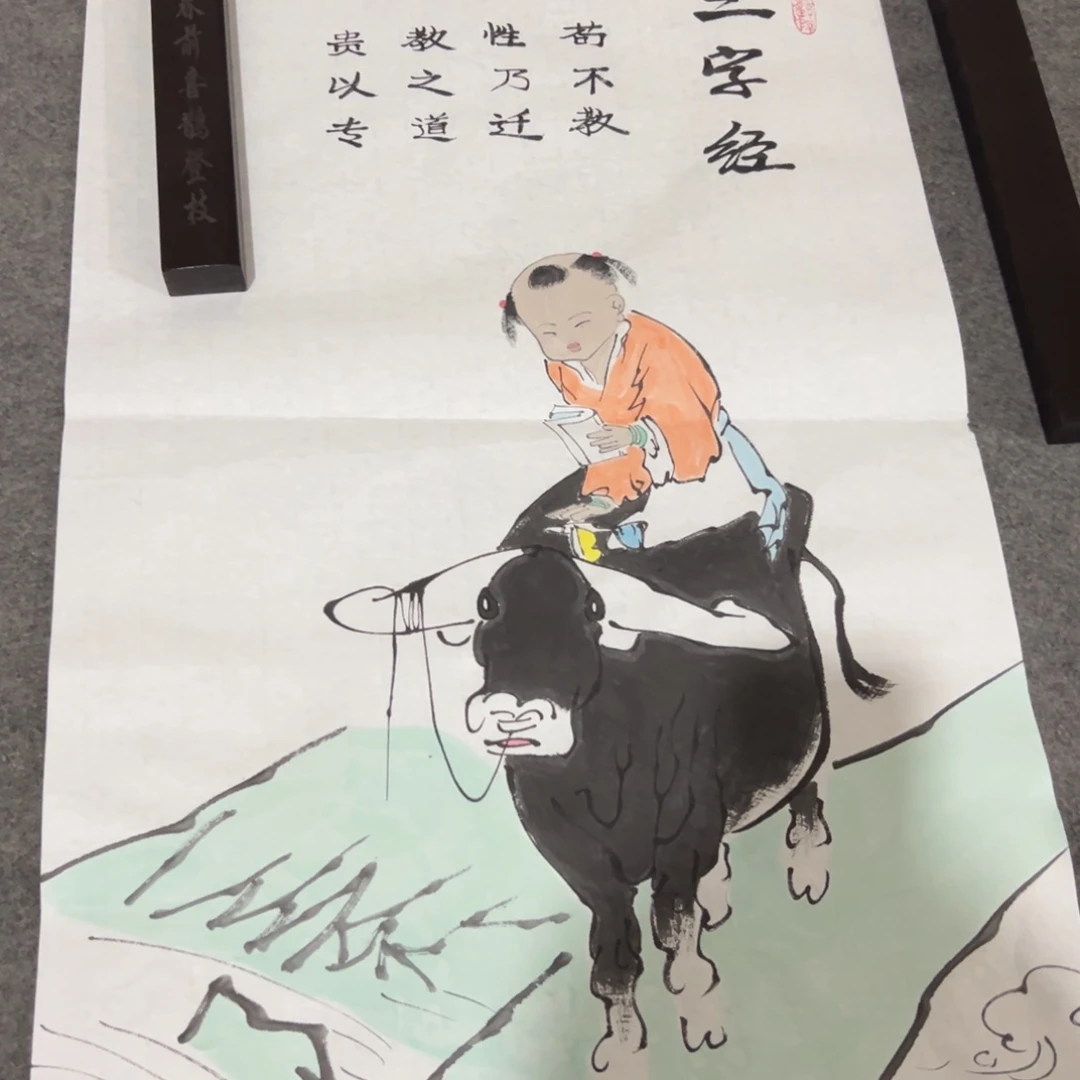 三字经
苟不教
性乃迁
教之道
贵以专
春前喜鹊登枝